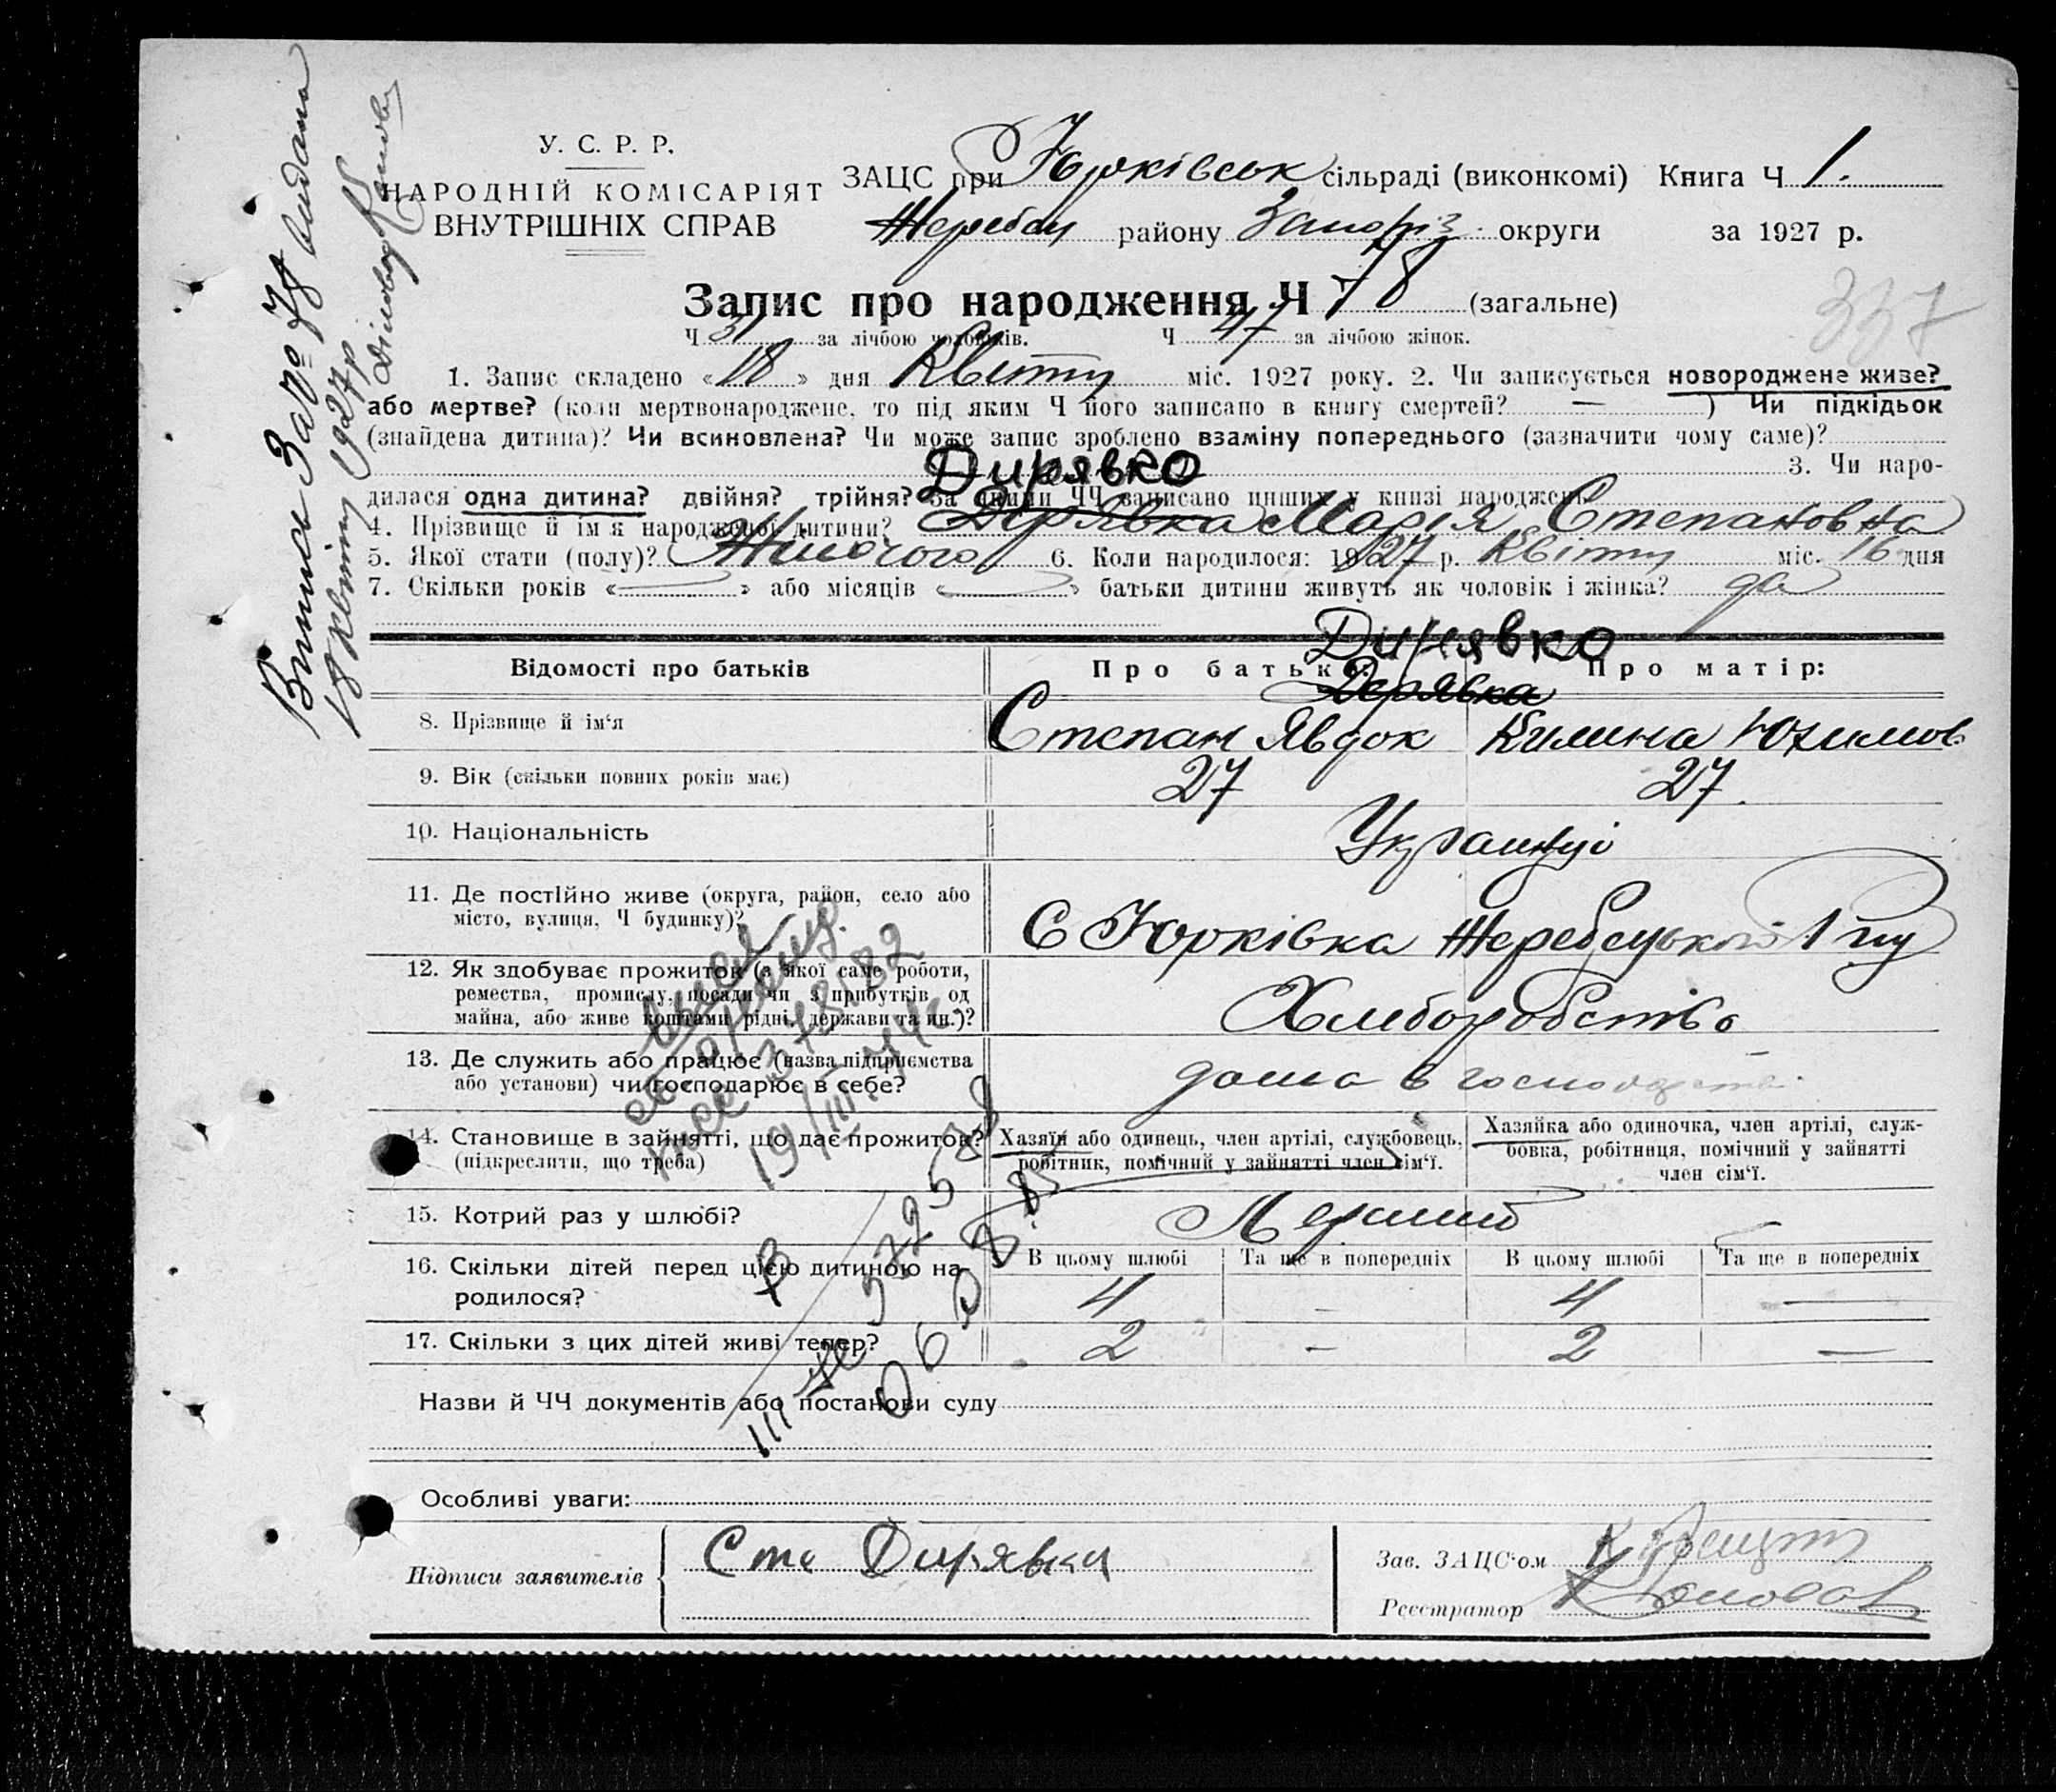 У. С. Р. Р.
НАРОДНІЙ КОМІСАРІЯТ
ВНУТРІШНІХ СПРАВ
ЗАЦС при Юрківськ сільраді (виконкомі) Книга Ч 1.
Жеребец району Запоріз. округи за 1927 р.
Запис про народження Ч 78 (загальне)
337
Ч 31 за лічбою чоловіків. Ч 47 за лічбою жінок.
1. Запис складено « 18 » дня Квітну міс. 1927 року. 2. Чи записується новороджене живе?
або мертве? (коли мертвонароджене, то під яким Ч його записано в книгу смертей? — ) Чи підкідьок
(знайдена дитина)? Чи всиновлена? Чи може запис зроблено взаміну попереднього (зазначити чому саме)?
3. Чи наро-
Дирявко
дилася одна дитина? двійня? трійня? За якими ЧЧ записано инших у книзі народжень
4. Прізвище й ім'я народженої дитини? Дерявка Марія Степановна
5. Якої стати (полу)? Жіночого 6. Коли народилося: 1927 р. Квітну міс. 16 дня
7. Скільки років « — » або місяців « — » батьки дитини живуть як чоловік і жінка? да
Дирявко
Відомості про батьків Про батька: Про матір:
Дерявка
8. Прізвище й ім'я Степан Явдок Килина Юхимов.
9. Вік (скільки повних років має) 27 27.
10. Національність Українці
11. Де постійно живе (округа, район, село або
місто, вулиця, Ч будинку)? С Юрківка Жеребецького
12. Як здобуває прожиток (з якої саме роботи,
ремества, промислу, посади чи з прибутків од
майна, або живе коштами рідні, держави та ин.)? Хлиборобство
13. Де служить або працює (назва підприємства
або установи) чи господарює в себе? дома в господарстві
14. Становище в зайнятті, що дає прожиток?
(підкреслити, що треба)
Хазяїн або одинець, член артілі, службовець,
робітник, помічний у зайнятті член сім'ї.
Хазяйка або одиночка, член артілі, служ-
бовка, робітниця, помічний у зайнятті
член сім'ї.
15. Котрий раз у шлюбі? Первий —
16. Скільки дітей перед цією дитиною на-
родилося?
В цьому шлюбі Та ще в попередніх В цьому шлюбі Та ще в попередніх
4 — 4 —
17. Скільки з цих дітей живі тепер? 2 — 2 —
Назви й ЧЧ документів або постанови суду
Особливі уваги:
Підписи заявителів Сте Дирявка
Зав. ЗАЦС'ом
Реєстратор
Випись За № 78 видана
18 Квітну 1927 р
19/III